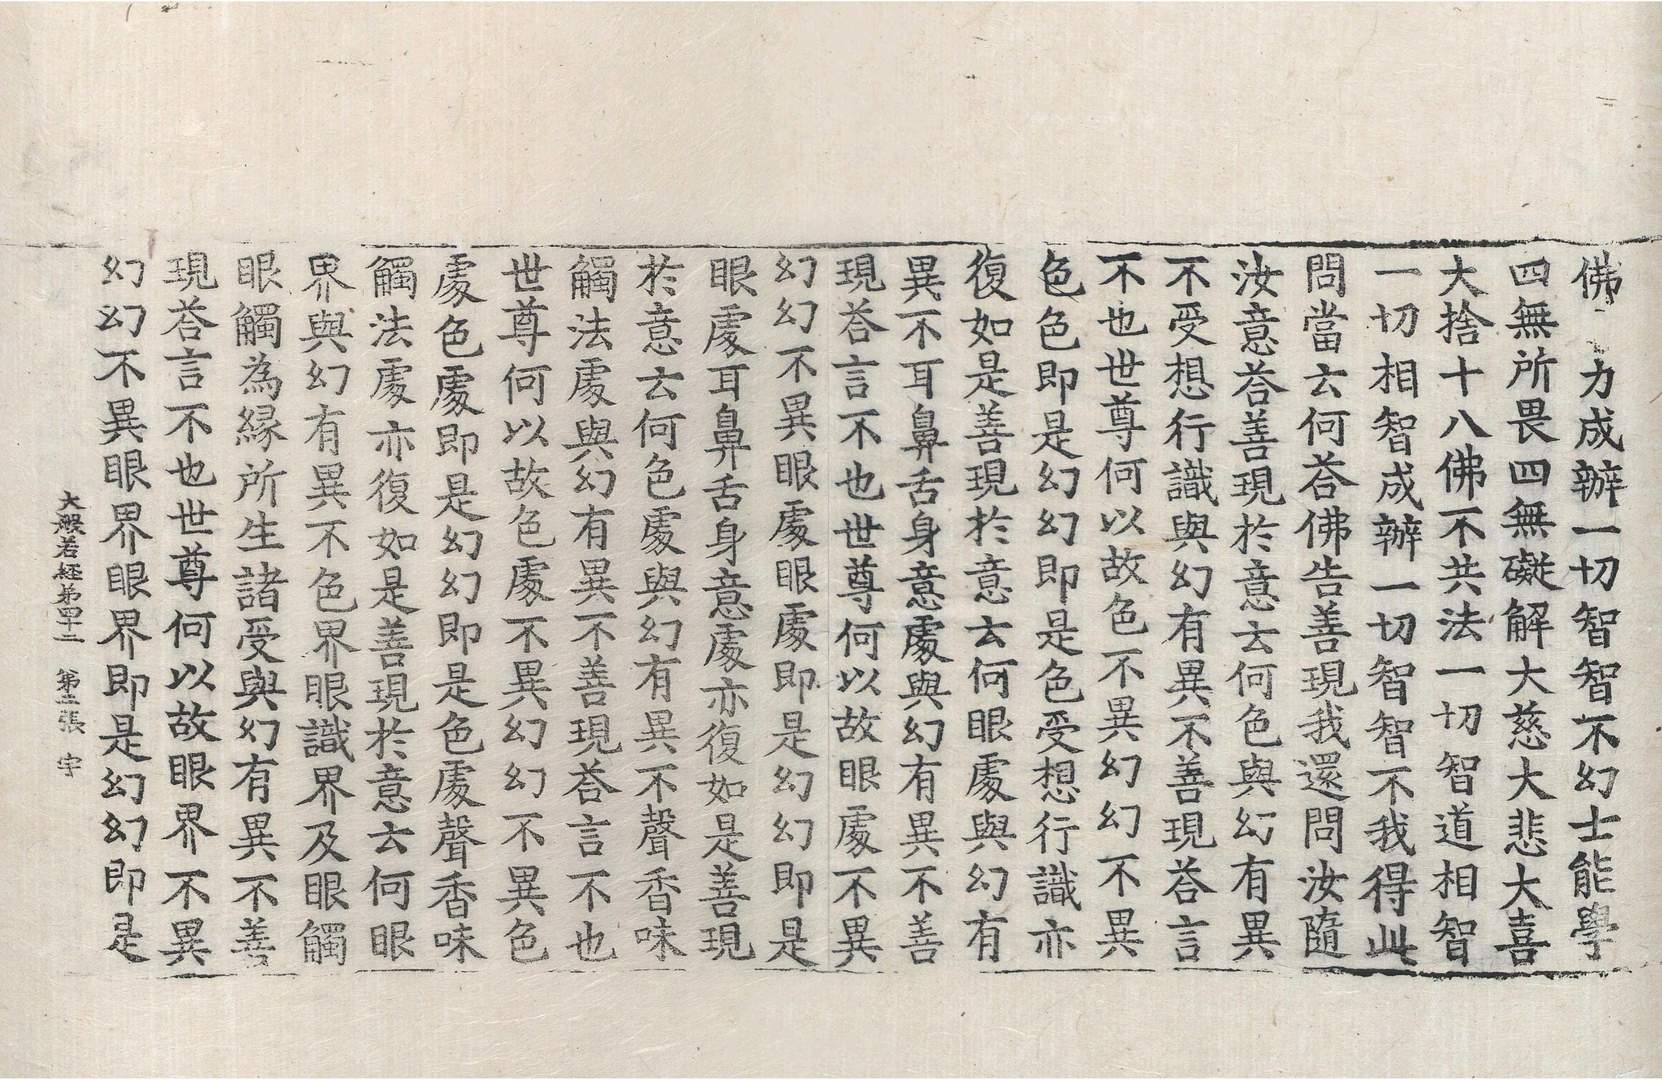 佛力成辦一切智智不幻士能學
四無所畏四無礙解大慈大悲大喜
大捨十八佛不共法一切智道相智
一切相智成辦一切智智不我得此
問當云何荅佛告善現我還問汝隨
汝意荅善現於意云何色與幻有異
不受想行識與幻有異不善現荅言
不也世尊何以故色不異幻幻不異
色色即是幻幻即是色受想行識亦
復如是善現於意云何眼處與幻有
異不耳鼻舌身意處與幻有異不善
現荅言不也世尊何以故眼處不異
幻幻不異眼處眼處即是幻幻即是
眼處耳鼻舌身意處亦復如是善現
於意云何色處與幻有異不聲香味
觸法處與幻有異不善現荅言不也
世尊何以故色處不異幻幻不異色
處色處即是幻幻即是色處聲香味
觸法處亦復如是善現於意云何眼
界與幻有異不色界眼識界及眼觸
眼觸為緣所生諸受與幻有異不善
現荅言不也世尊何以故眼界不異
幻幻不異眼界眼界即是幻幻即是
大般若経第四十二 第張 宇